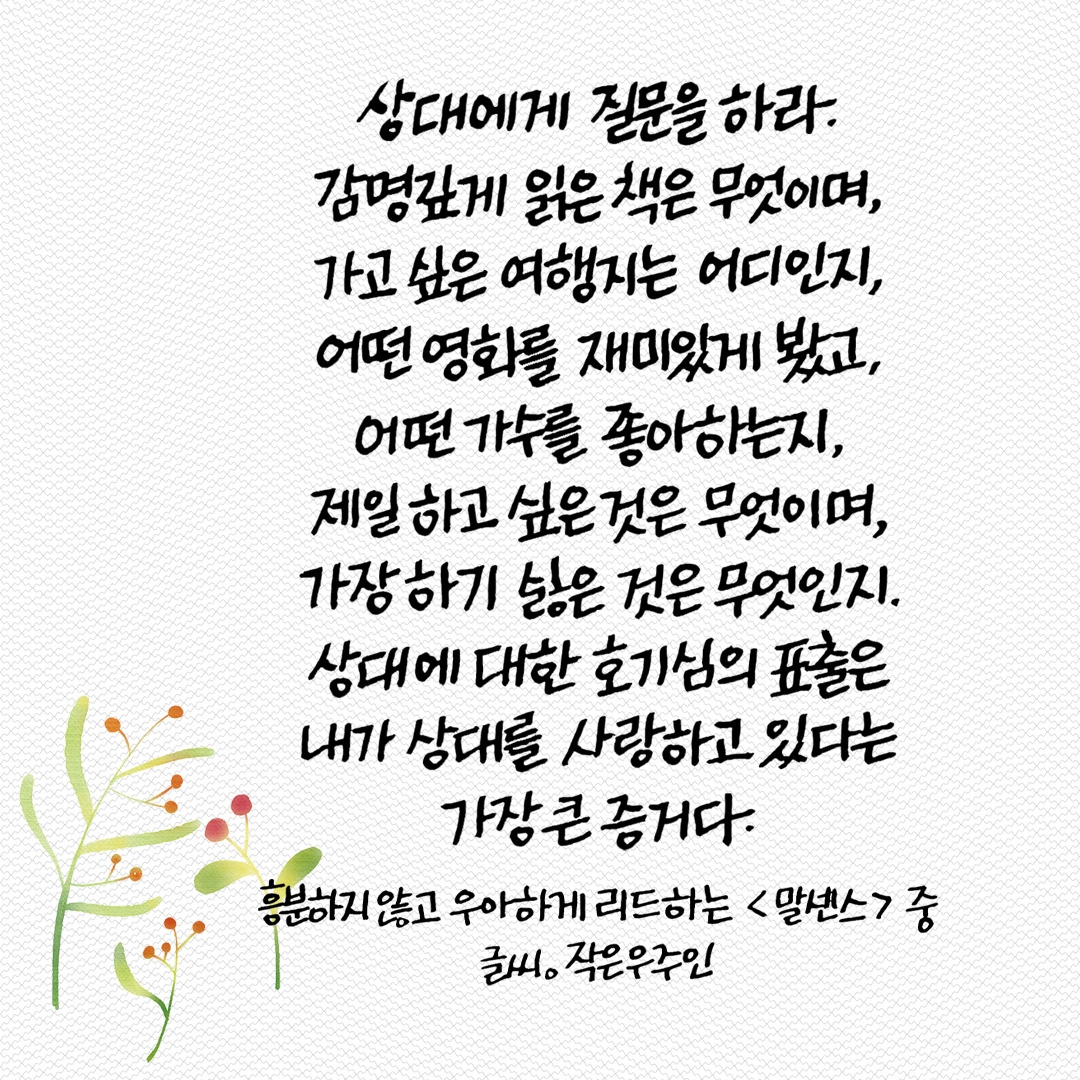 상대에게 질문을 하라.
감명깊게 읽은 책은 무엇이며,
가고 싶은 여행지는 어디인지,
어떤 영화를 재미있게 봤고,
어떤 가수를 좋아하는지,
제일 하고 싶은 것은 무엇이며,
가장 하기 싫은 것은 무엇인지.
상대에 대한 호기심의 표출은
내가 상대를 사랑하고 있다는
가장 큰 증거다.
흥분하지 않고 우아하게 리드하는 <말센스> 중
글씨。작은우주인